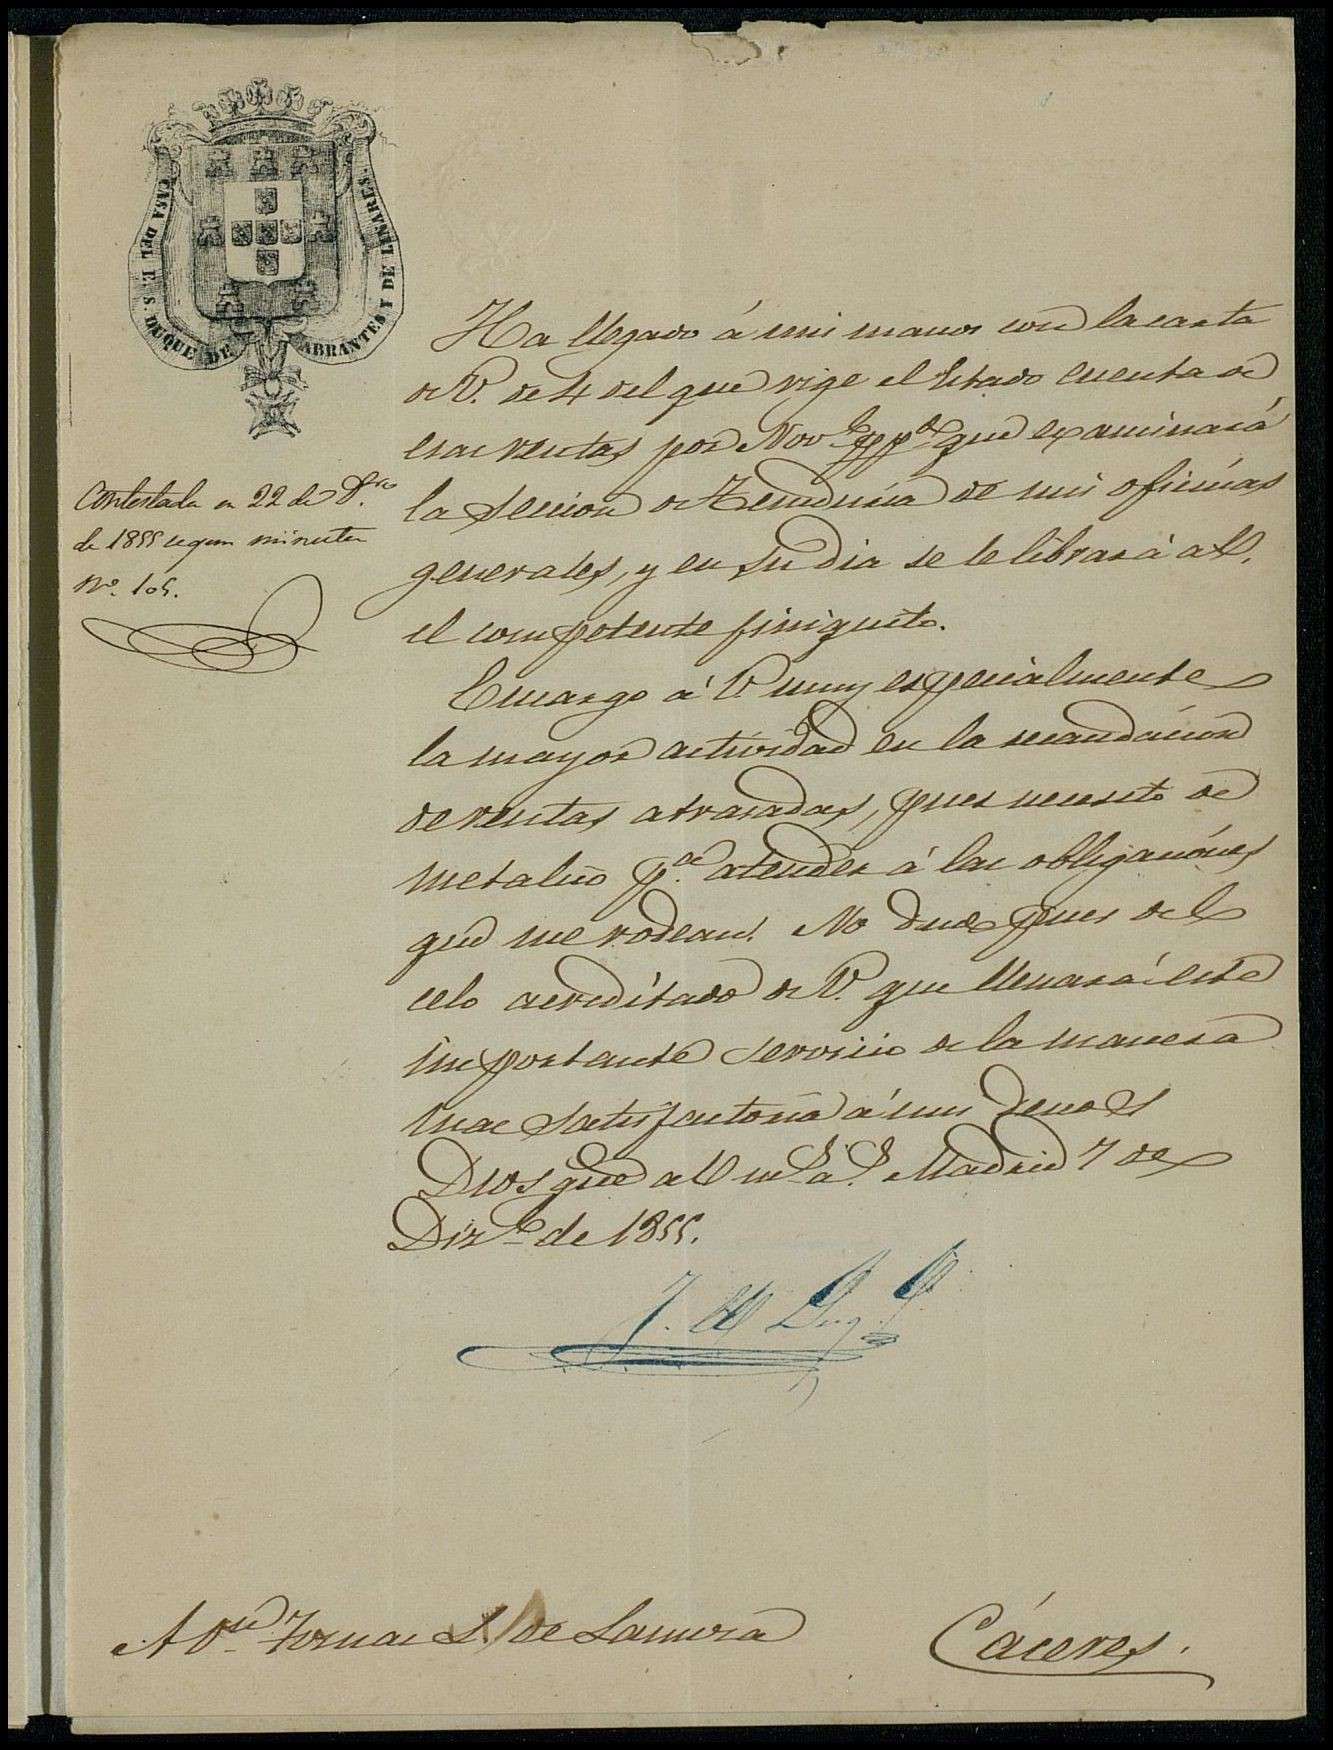 CASA DEL E. S. DUQUE DE ABRANTES Y DE LINARES.
Contestada en 22 de D.re
de 1855 segun minuta
N.o 105.
Ha llegado á mis manos con la carta
de V. de 4 del que rige el Estado cuenta de
esas rentas por Nov.e pp.do que examinará
la Seccion de Teneduria de mis oficinas
generales, y en su dia se le librará a V.
el competente finiquito.
Encargo á V. muy especialmente
la mayor actividad en la recaudacion
de rentas atrasadas, pues necesito de
metalico p.a atender á las obligaciónes
que me rodean. No dudo pues del
celo acreditado de V. que llenará este
importante servicio de la manera
mas satisfactoria á mis deseos
Dios gue a V. m.s a.s Madrid 7 de
Diz.e de 1855.
A D.n Tomas S. de Lamora
Cáceres.